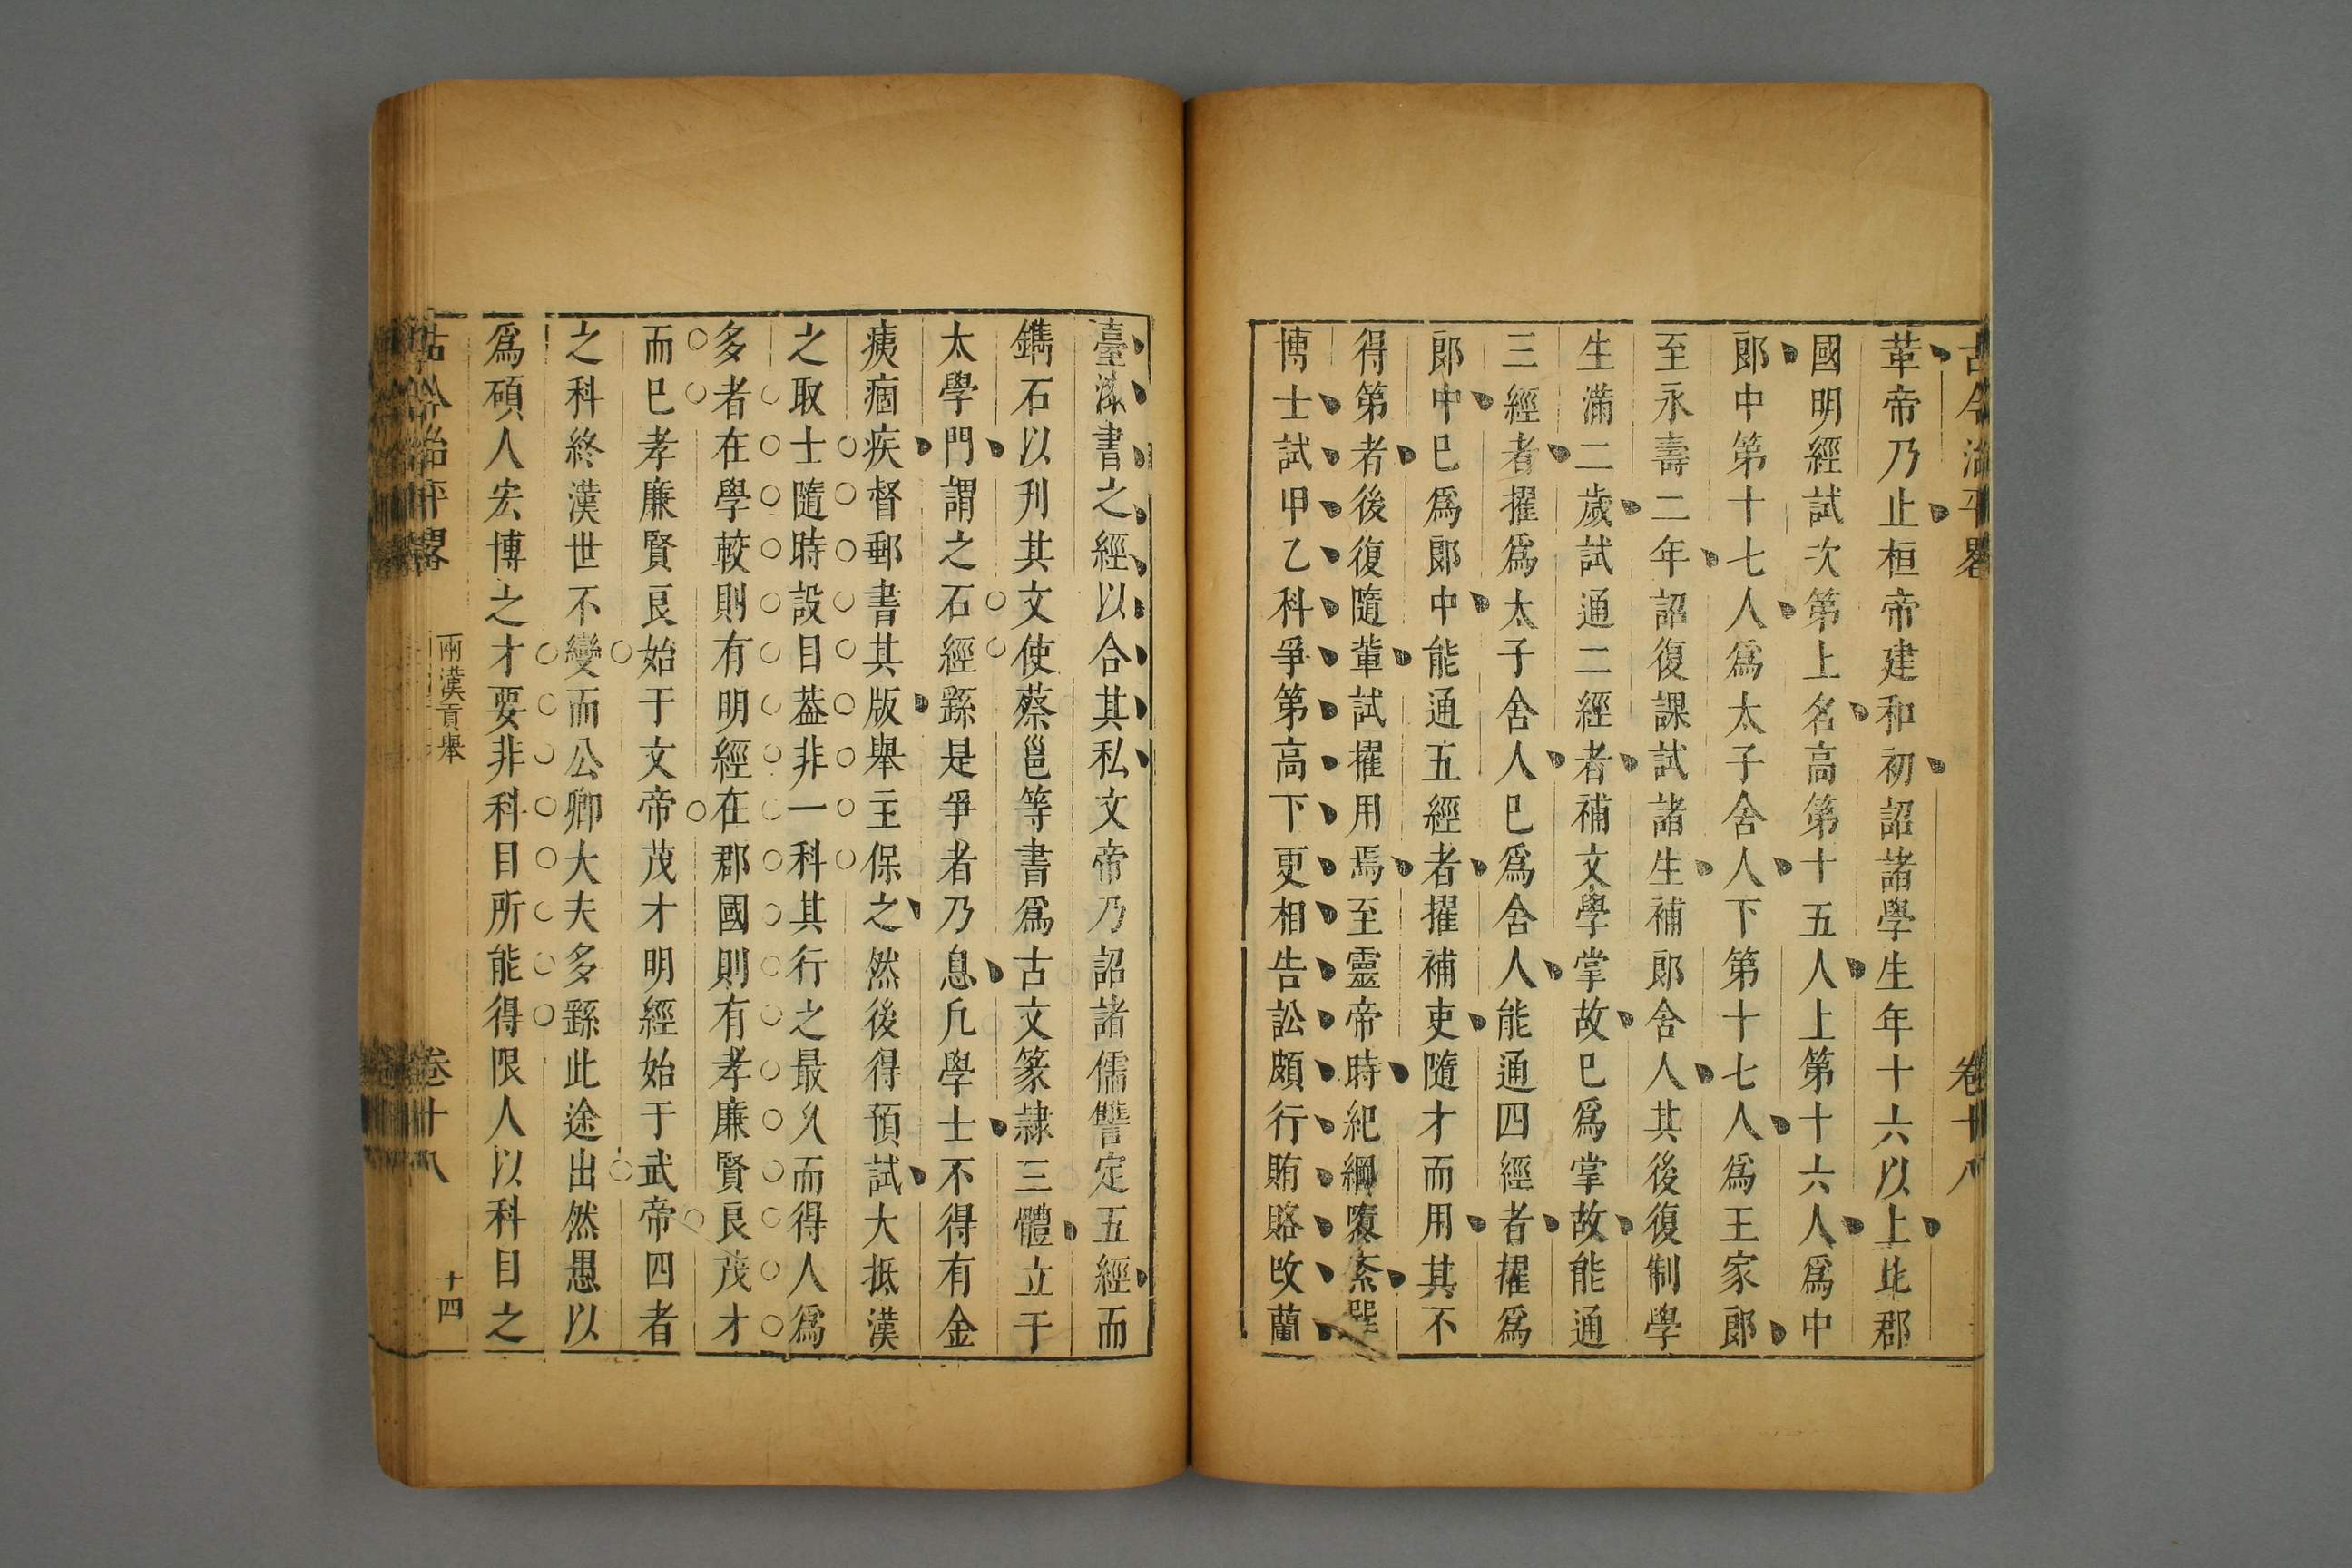 古今治平畧
卷十八
革帝乃止桓帝建和初詔諸學生年十六以上比郡
國明經試次第上名高第十五人上第十六人爲中
郎中第十七人爲太子舍人下第十七人爲王家郎
至永壽二年詔復課試諸生補郎舍人其後復制學
生滿二歲試通二經者補文學掌故已爲掌故能通
三經者擢爲太子舍人已爲舍人能通四經者擢爲
郎中已爲郎中能通五經者擢補吏隨才而用其不
得第者後復隨輩試擢用焉至靈帝時紀綱隳紊
博士試甲乙科爭第高下更相告訟頗行賄賂改蘭
臺漆書之經以合其私文帝乃詔諸儒讐定五經而
鐫石以刋其文使蔡邕等書爲古文篆隷三體立于
太學門謂之石經繇是爭者乃息凢學士不得有金
痍痼疾督郵書其版舉主保之然後得預試大抵漢
之取士隨時設目葢非一科其行之最久而得人爲
多者在學較則有明經在郡國則有孝廉賢良茂才
而已孝廉賢良始于文帝茂才明經始于武帝四者
之科終漢世不變而公卿大夫多繇此途出然愚以
爲碩人宏博之才要非科目所能得限人以科目之
古今治平畧
兩漢貢舉
卷十八
十四